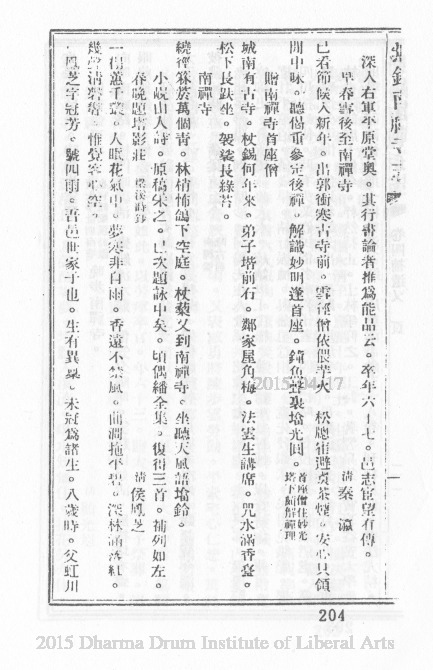 深入右軍平原堂奧。其行書論者推爲能品云。卒年六十七。邑志宦望有傳。
早春雪後至南禪寺　清 秦 瀛
已看節候入新年。出郭衝寒古寺前。雪徑僧依偎芋火。松牕雀避煑茶煙。安心只領
閒中味。聽偈重參定後禪。解識妙明逢首座。鐘魚聲裏塔光圓。首座僧住妙光塔下頗解禪理
贈南禪寺首座僧
城南有古寺。杖錫何年來。弟子塔前石。鄰家屋角梅。法雲生講席。咒水滿香臺。
松下長趺坐。袈裟長綠苔。
南禪寺
繞徑篠簜萬個靑。林梢怖鴿下空庭。杖藜又到南禪寺。坐聽天風語塔鈴。
小峴山人詩。原稿朱之。已次題詠中矣。頃偶繙全集。復得三首。補列如左。
春晚題塔影莊　梁溪詩鈔　清 侯鳳芝
一樹蕙千叢。人眠花氣中。夢寒非自雨。香遠不禁風。曲澗拖平碧。深林滴落紅。
幾聲清磬響。惟覺客心空。
鳳芝字冠芳。號四雨。吾邑世家子也。生有異稟。未冠爲諸生。八歲時。父虹川
204
2015/04/17
2015 Dharma Drum Institute of Liberal Arts